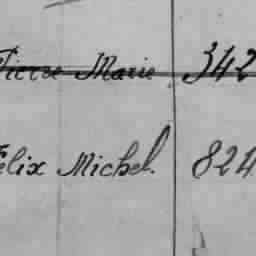 Pierre Marie 342
Félix Michel. 824